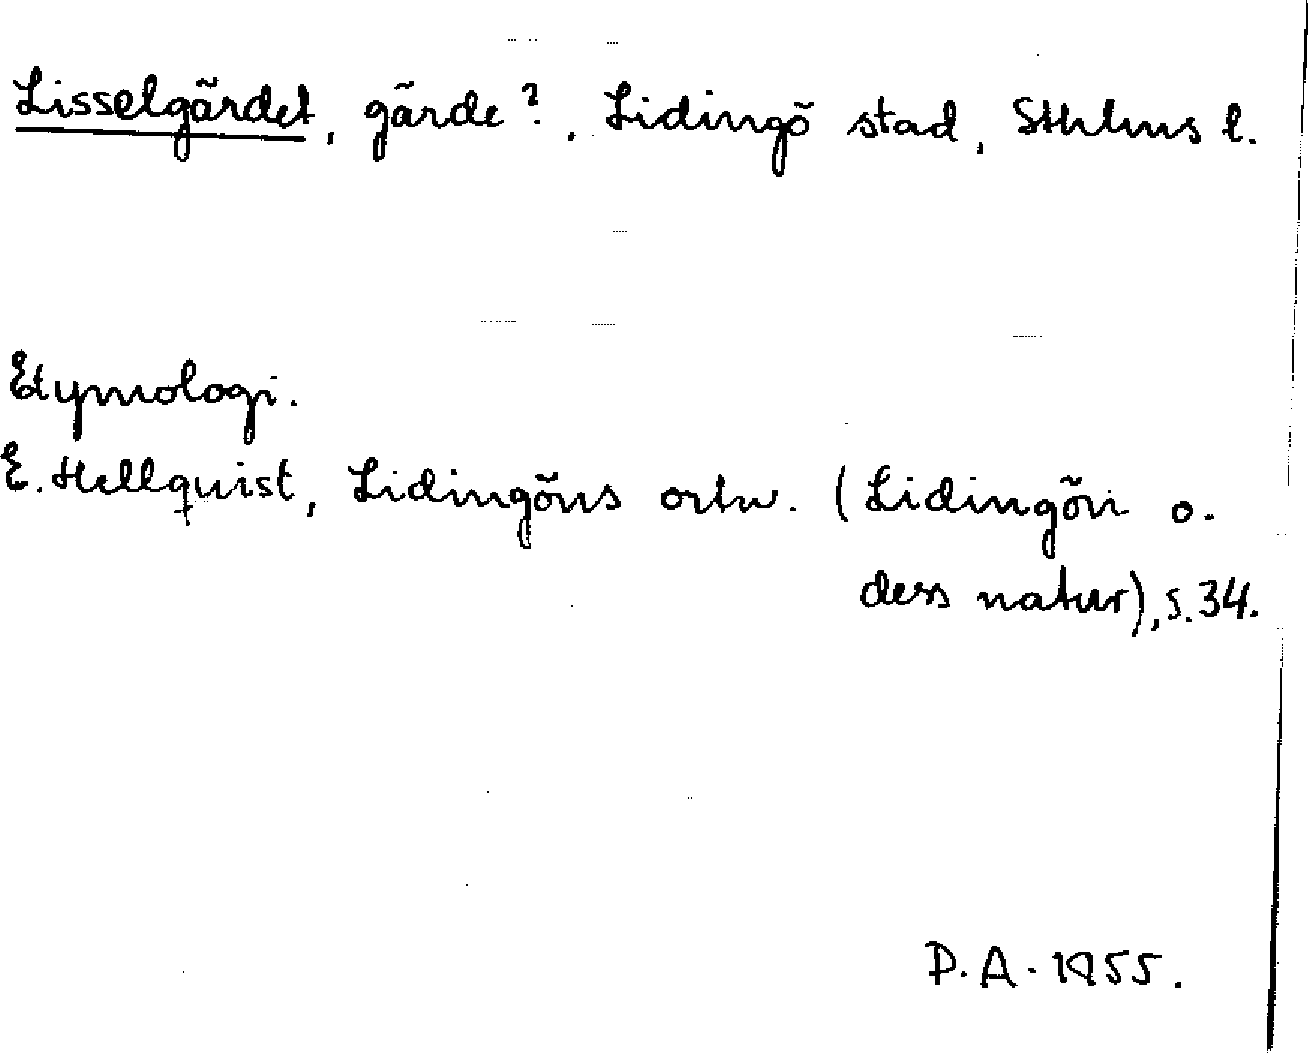 Lisselgärdet, gärde?, Lidingö stad, Sthlms l.
Etymologi.
E. Hellquist, Lidingöns ortn. (Lidingön o.
dess natur), s. 34.
P.A. 1955.